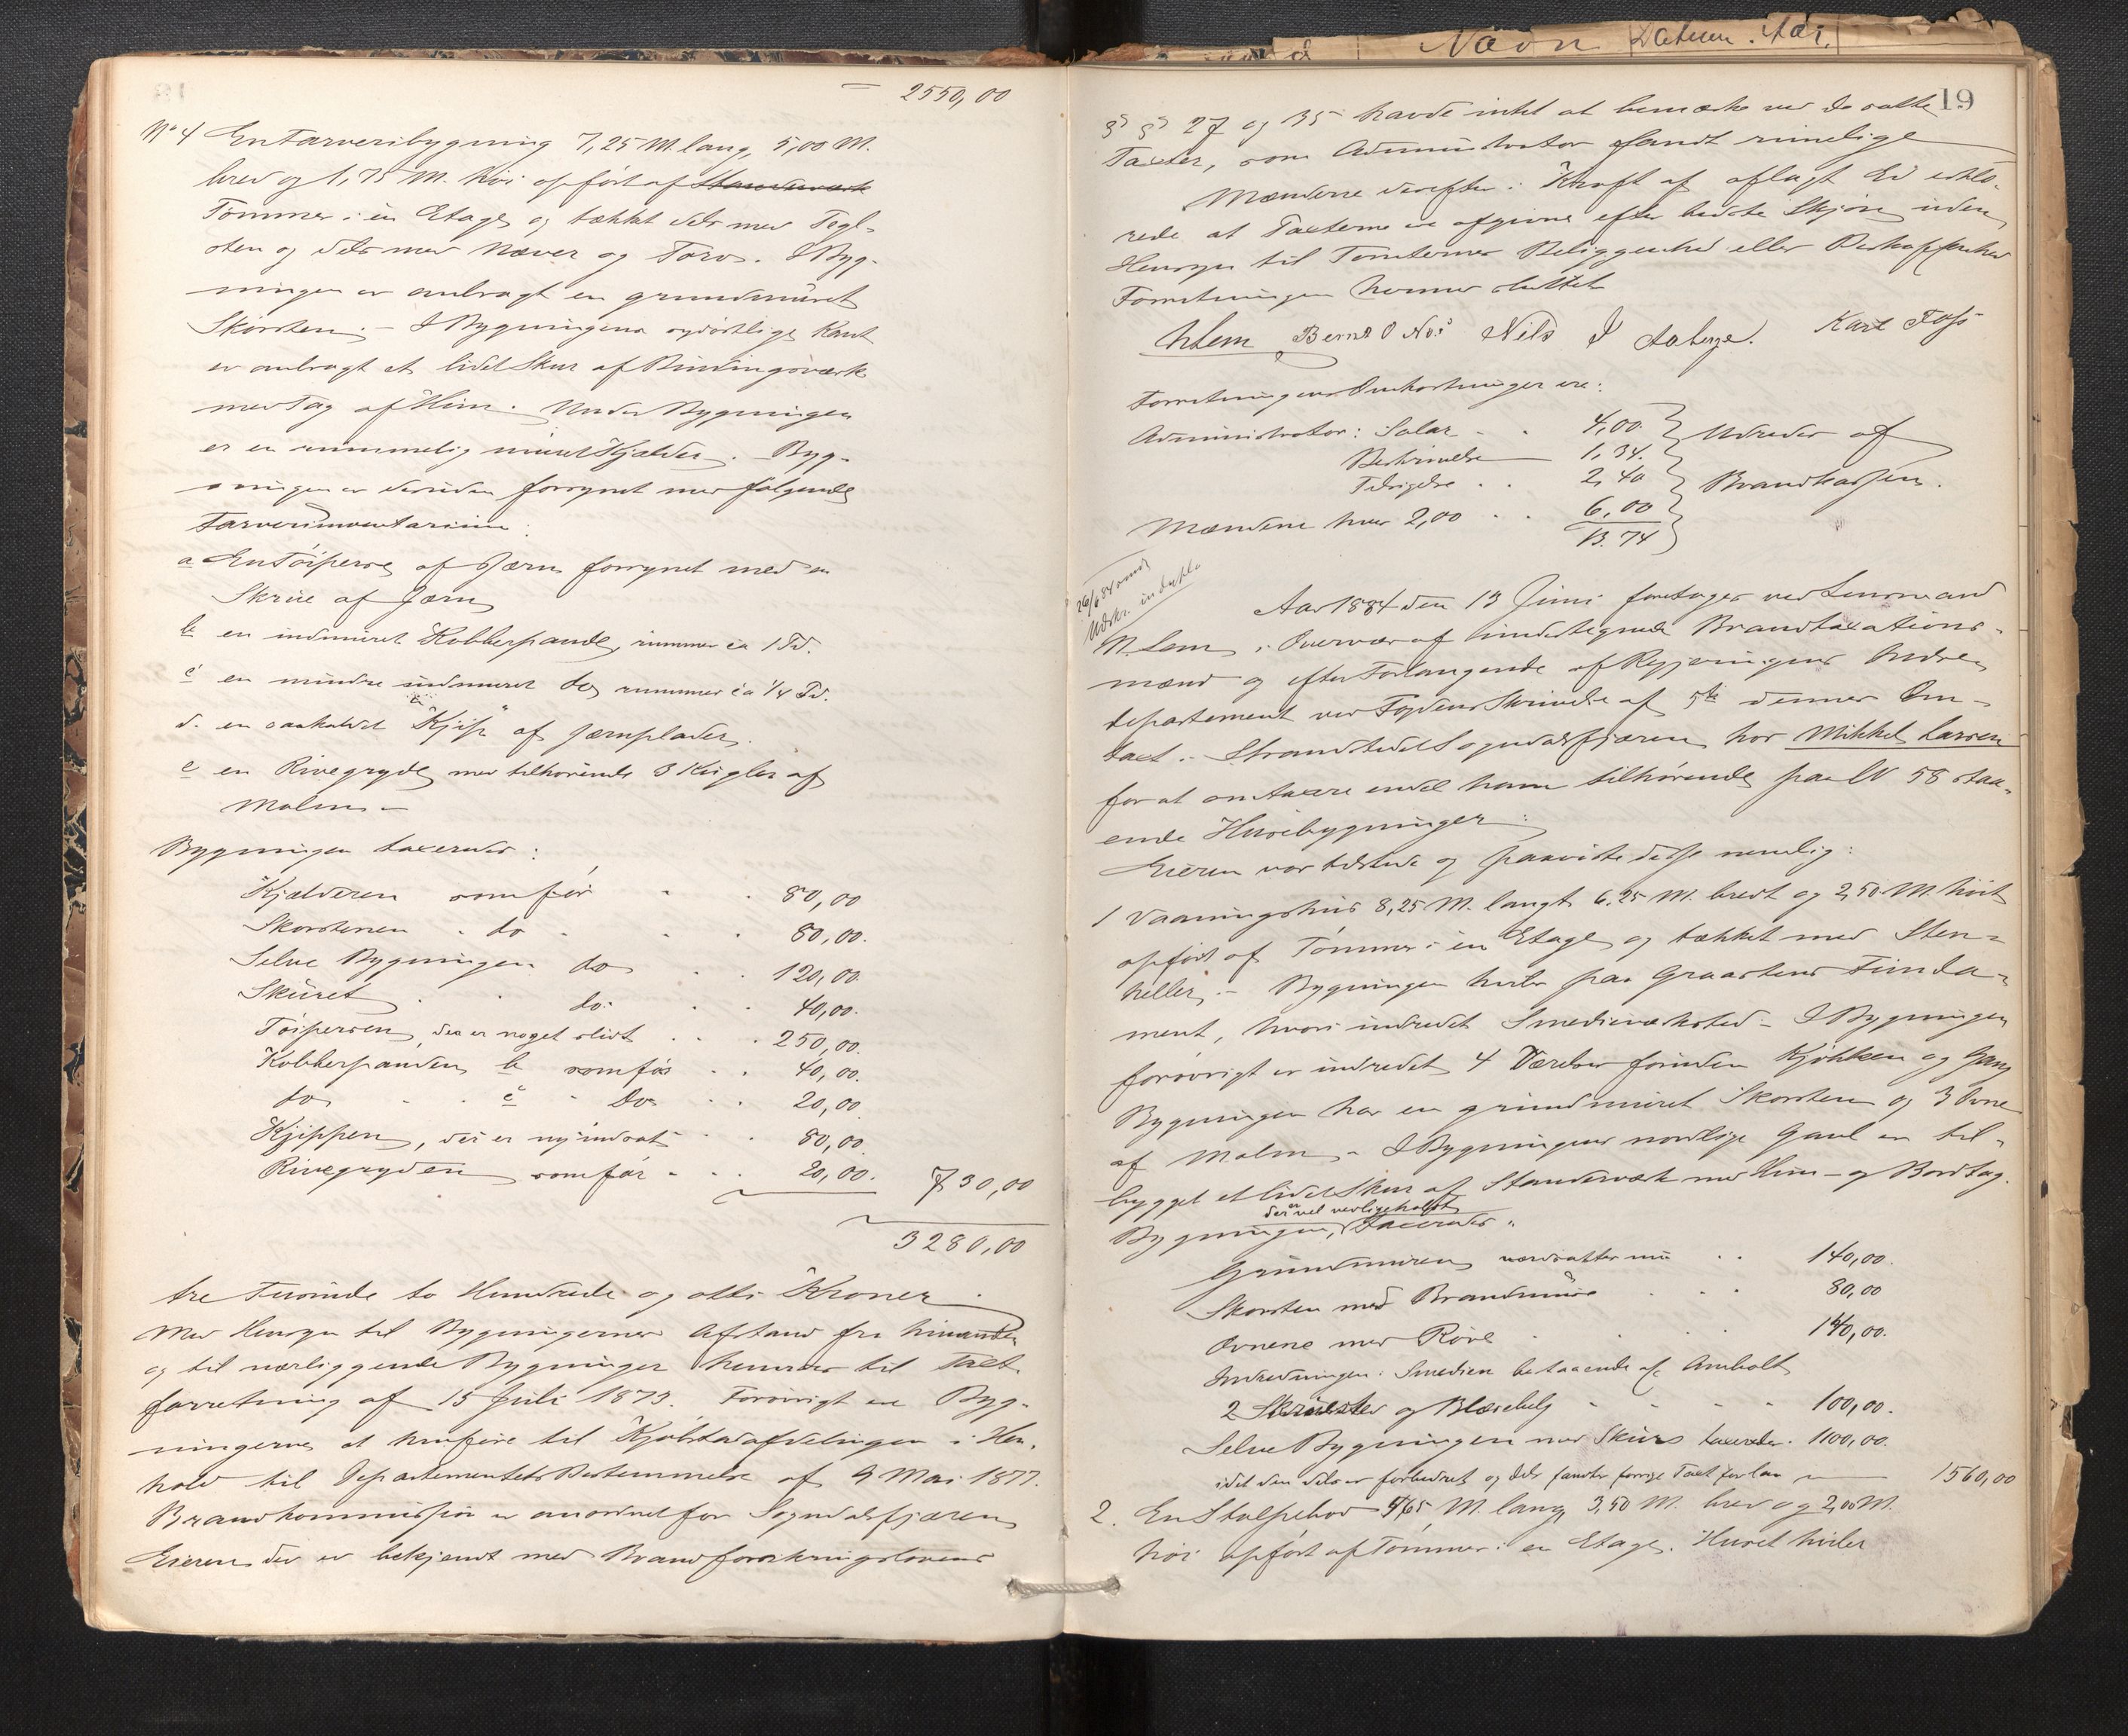 = 2550,00
No 4 En Farveribygning 7,25 M. lang, 5,00 M.
bred og 1,75 M. høi opført af Standerværk
Tømmer i en Etage og tækket dels med Tegl-
sten og dels med Næver og Torv. I Byg-
ningen er anbragt en grundmuret
Skorsten. - I Bygningens sydøstlige Kant
er anbragt et lidet Skur af Bindingsværk
med Tag af Him. Under Bygningen
er en rummelig muret Kjelder. Byg-
ningen er desuden forsynet med følgende
Farveriinventarium:
a En Tøiperse af Jærn forsynet med en
Skrue af Jærn
b en indmuret Kobberpande, rummer ca 1 Td.
c en mindre indmuret do, rummer ca 1/4 Td.
d. en saakaldet "Kjip" af Jærnplader.
e en Rivegryde med tilhørende 3 Kugler af
Malm. -
Bygningen taxeredes:
Kjælderen somfør - . 80,00
Skorstenen . do - . . 80,00.
Selve Bygningen do . . 120,00.
Skuret . . do: . . 40,00.
Tøipersen, der er noget slidt . . . 250,00.
Kobberpanden b somfør . . 40,00.
do . . c " Do . . 20,00
Kjippen, der er ny indsat . . 80,00.
Rivegryden somfør . . . 20,00. 730,00
3280,00
tre Tusinde to Hundrede og otti Kroner.
Med Hensyn til Bygningernes Afstand fra hinanden
og til nærliggende Bygninger henvises til Taxt-
forretning af 15 Juli 1873. Forøvrigt er Byg-
ningerne at henføre til Kjøbstadafdelingen i Hen-
hold til Departementets Bestemmelse af 9 Mai 1877.
Brandkommission er anordnet for Sogndalsfjæren
Eieren der er bekjendt med Brandforsikringslovens
Navn Datum. Aar.
19
§ § 27 og 35 havde intet at bemærke ved de satte
Taxter, som Administrator fandt rimelige
Mændene derefter i Kraft af aflagt Ed erklæ-
rede at Taxterne er afgivne efter bedste Skjøn uden
Hensyn til Tomternes Beliggenhed eller Beskaffenhed
Forretningen hermed sluttet
NLem Bernt O Nes Nils J Aaberge. Karl Foss
Forretningens Omkostninger ere:
Administrator: Salar . . 4,00. Udredes af
Beskrivelse 1,34.
Tilsigelse . . 2,40 Brandkassen.
Mændene hver 2,00 . . 6,00
13.74
26/6 84
Udskr. in duplo
Aar 1884 den 13 Juni foretoges ved Lensmand
N. Lem i Overvær af undertegnede Brandtaxations-
mænd og efter Forlangende af Regjeringens Indre-
departement ved Fogdens Skrivelse af 5te dennes Om-
taxt i Strandstedet Sogndalsfjæren hos Mikkel Larsen
for at omtaxere endel ham tilhørende paa LN 58 staa-
ende Husebygninger:
Eieren var tilstede og paaviste disse nemlig:
1 Vaaningshus 8,25 M. langt 6,25 M. bredt og 2,50 M. høit
opført af Tømmer i en Etage og tækket med Sten-
heller. - Bygningen hviler paa Graastens Funda-
ment, hvori indredet Smedieværksted - I Bygningen
forøvrigt er indredet 4 Værelser foruden Kjøkken og Gang
Bygningen har en grundmuret Skorsten og 3 Ovne
af Malm - I Bygningens nordlige Gavl er til-
bygget et lidet Skur af Standerværk med Him- og Bordtag.
der er vel vedligeholdt
Bygningen, taxeredes:
Grundmuren værdsattes nu . . 140,00.
Skorsten med Brandmure . . . 80,00
Ovnene med Røre . . . . 140,00.
Indredningen i Smedien bestaaende af Ambolt
2 Skruested og Blæsebelg - - - - 100,00.
Selve Bygningen med Skurs taxeredes. 1100,00.
idet den dels er forbedret og dels fandtes forrige Taxt for lav 1560,00
2. En Stolpebod 4,65 M. lang, 3,50 M. bred og 2,00 M.
høi opført af Tømmer i en Etage. Huset hviler